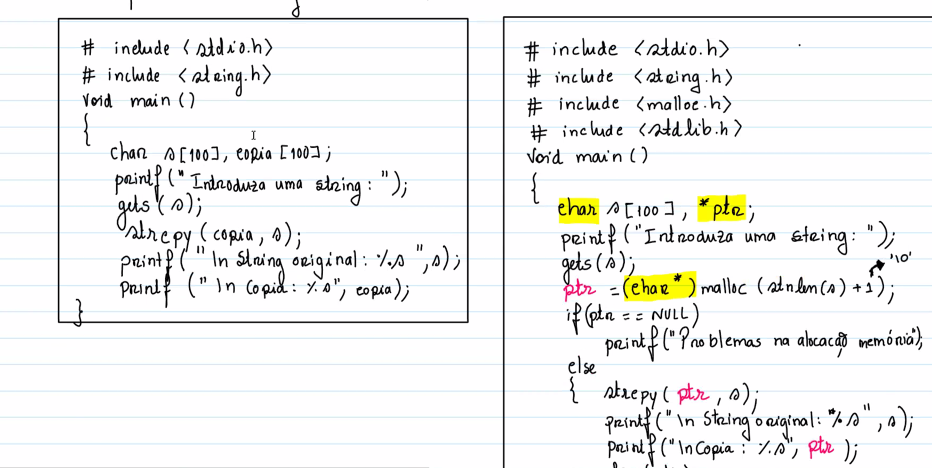 # include <stdio.h>
# include <string.h>
void main ()
{
char s[100], copia [100];
printf (" Introduza uma string : ");
gets (s);
strcpy (copia, s);
printf (" \n String original : %s ", s);
printf (" \n Copia : %s", copia);
}
# include <stdio.h>
# include <string.h>
# include <malloc.h>
# include <stdlib.h>
void main ()
{
char s[100], *ptr;
printf ("Introduza uma string : ");
gets(s);
'\0'
ptr = (char *) malloc (strlen(s) +1);
if(ptr == NULL)
printf ("Problemas na alocação memória");
else
{ strcpy( ptr , s);
printf("\n String original : %s", s);
printf("\n Copia : %s", ptr );